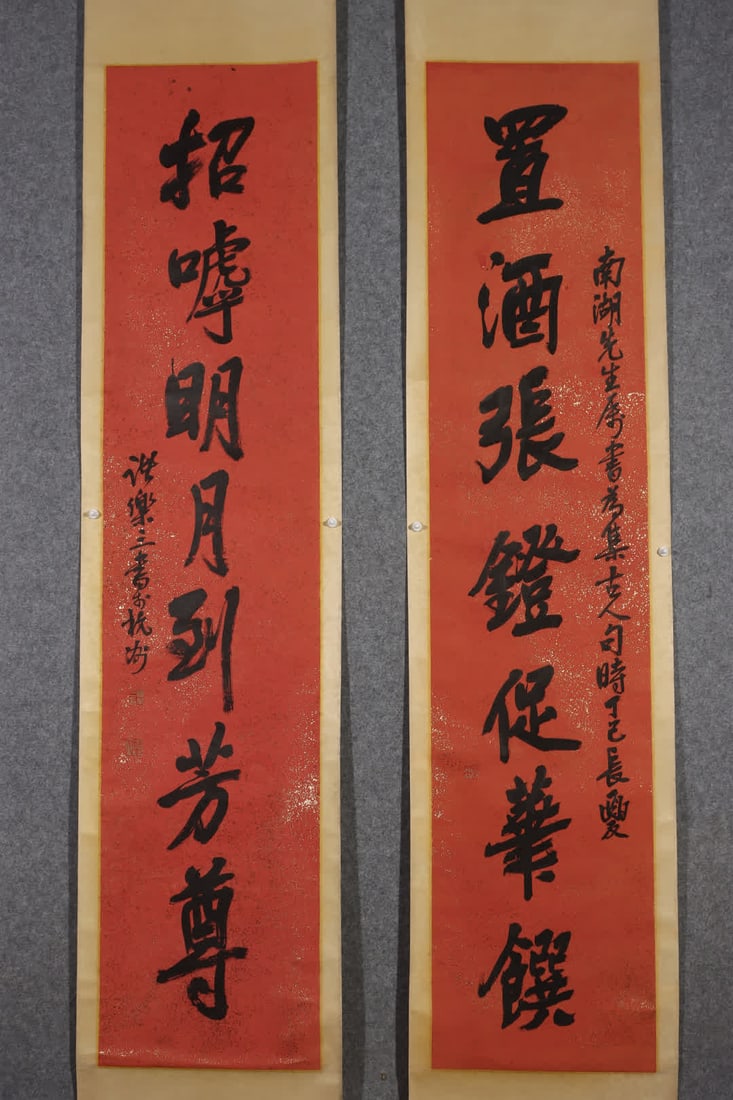 置酒張鐙促華饌
南湖先生属書為集古人句時丁巳長夏
招嘑明月到芳尊
諸樂三書於杭州